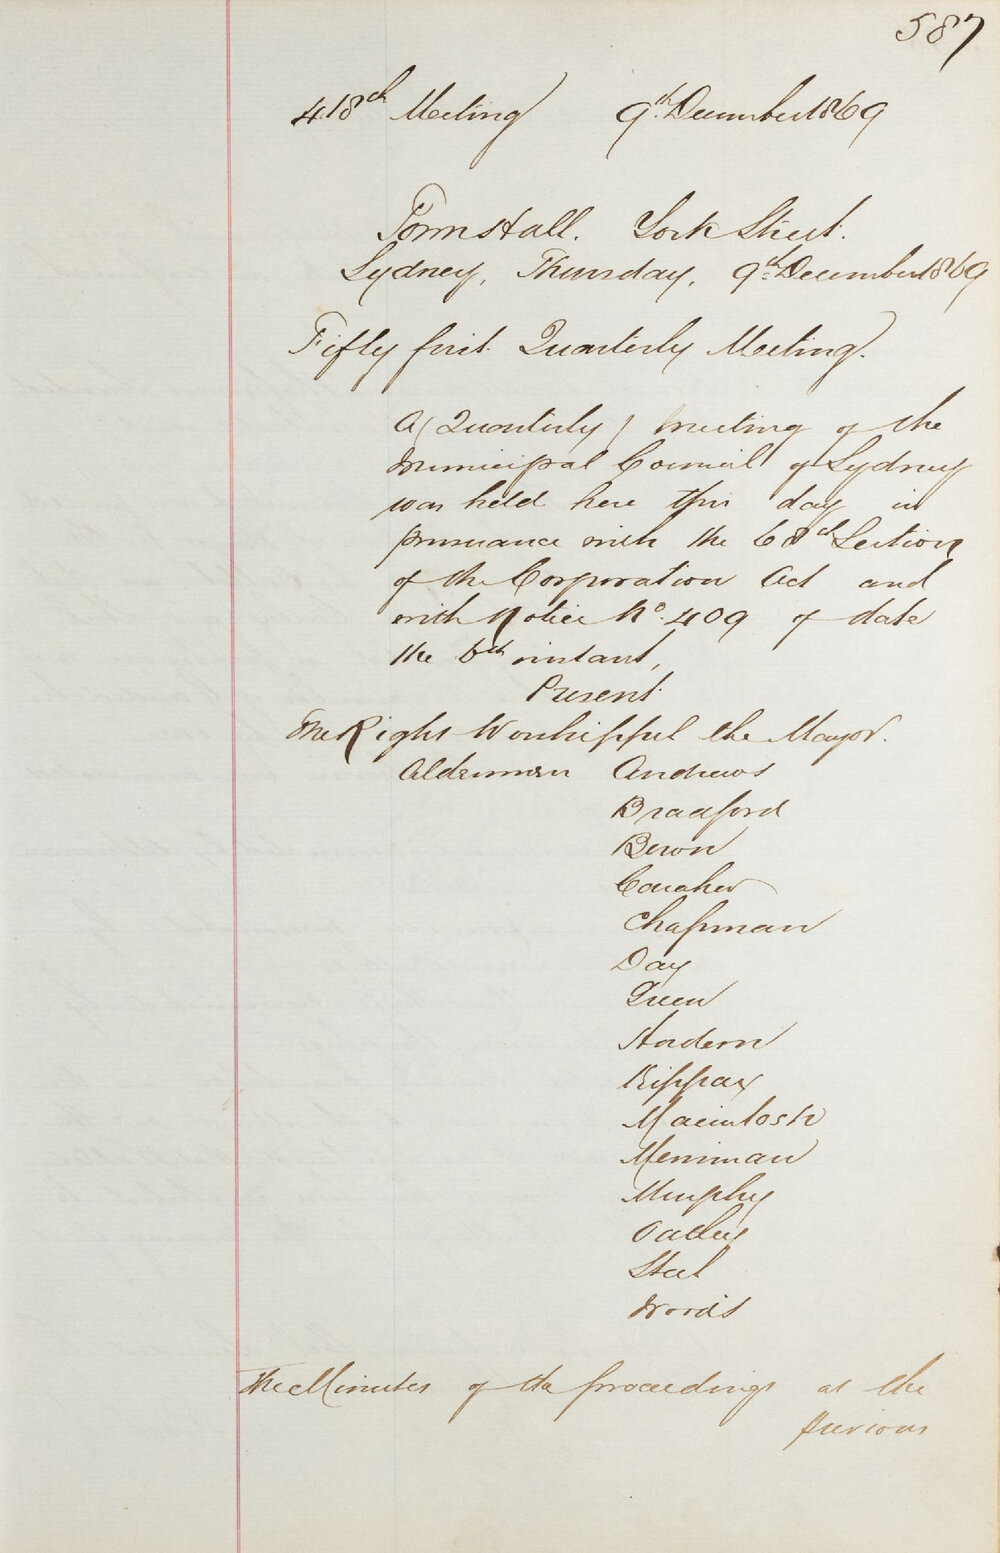 587
418th Meeting 9th December 1869
Town Hall. York Street.
Sydney, Thursday, 9th December 1869
Fifty first Quarterly Meeting.
A (Quarterly) meeting of the
Municipal Council of Sydney
was held here this day in
pursuance with the 68th Section
of the Corporation Act and
with Notice No. 409 of date
the 6th instant,
Present
The Right Worshipful the Mayor.
Aldermen Andrews
Bradford
Bown
Caraher
Chapman
Day
Green
Hordern
Kippax
Macintosh
Merriman
Murphy
Oatley
Steel
Woods
The Minutes of the proceedings at the
previous